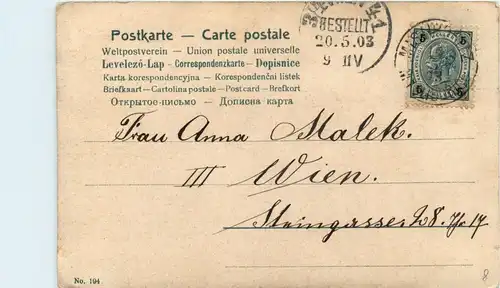 Postkarte — Carte postale
Weltpostverein — Union postale universelle
Levelező-Lap — Correspondenzkarte — Dopisnice
Karta korespondencyjna — Korespondenční lístek
Briefkaart — Cartolina postale — Postcard — Brefkort
Открытое письмо — Дописна карта
BESTELLT
20.5.03
9 IIV
Frau Anna Malek.
III Wien.
Steingasse 28.
No. 194
8